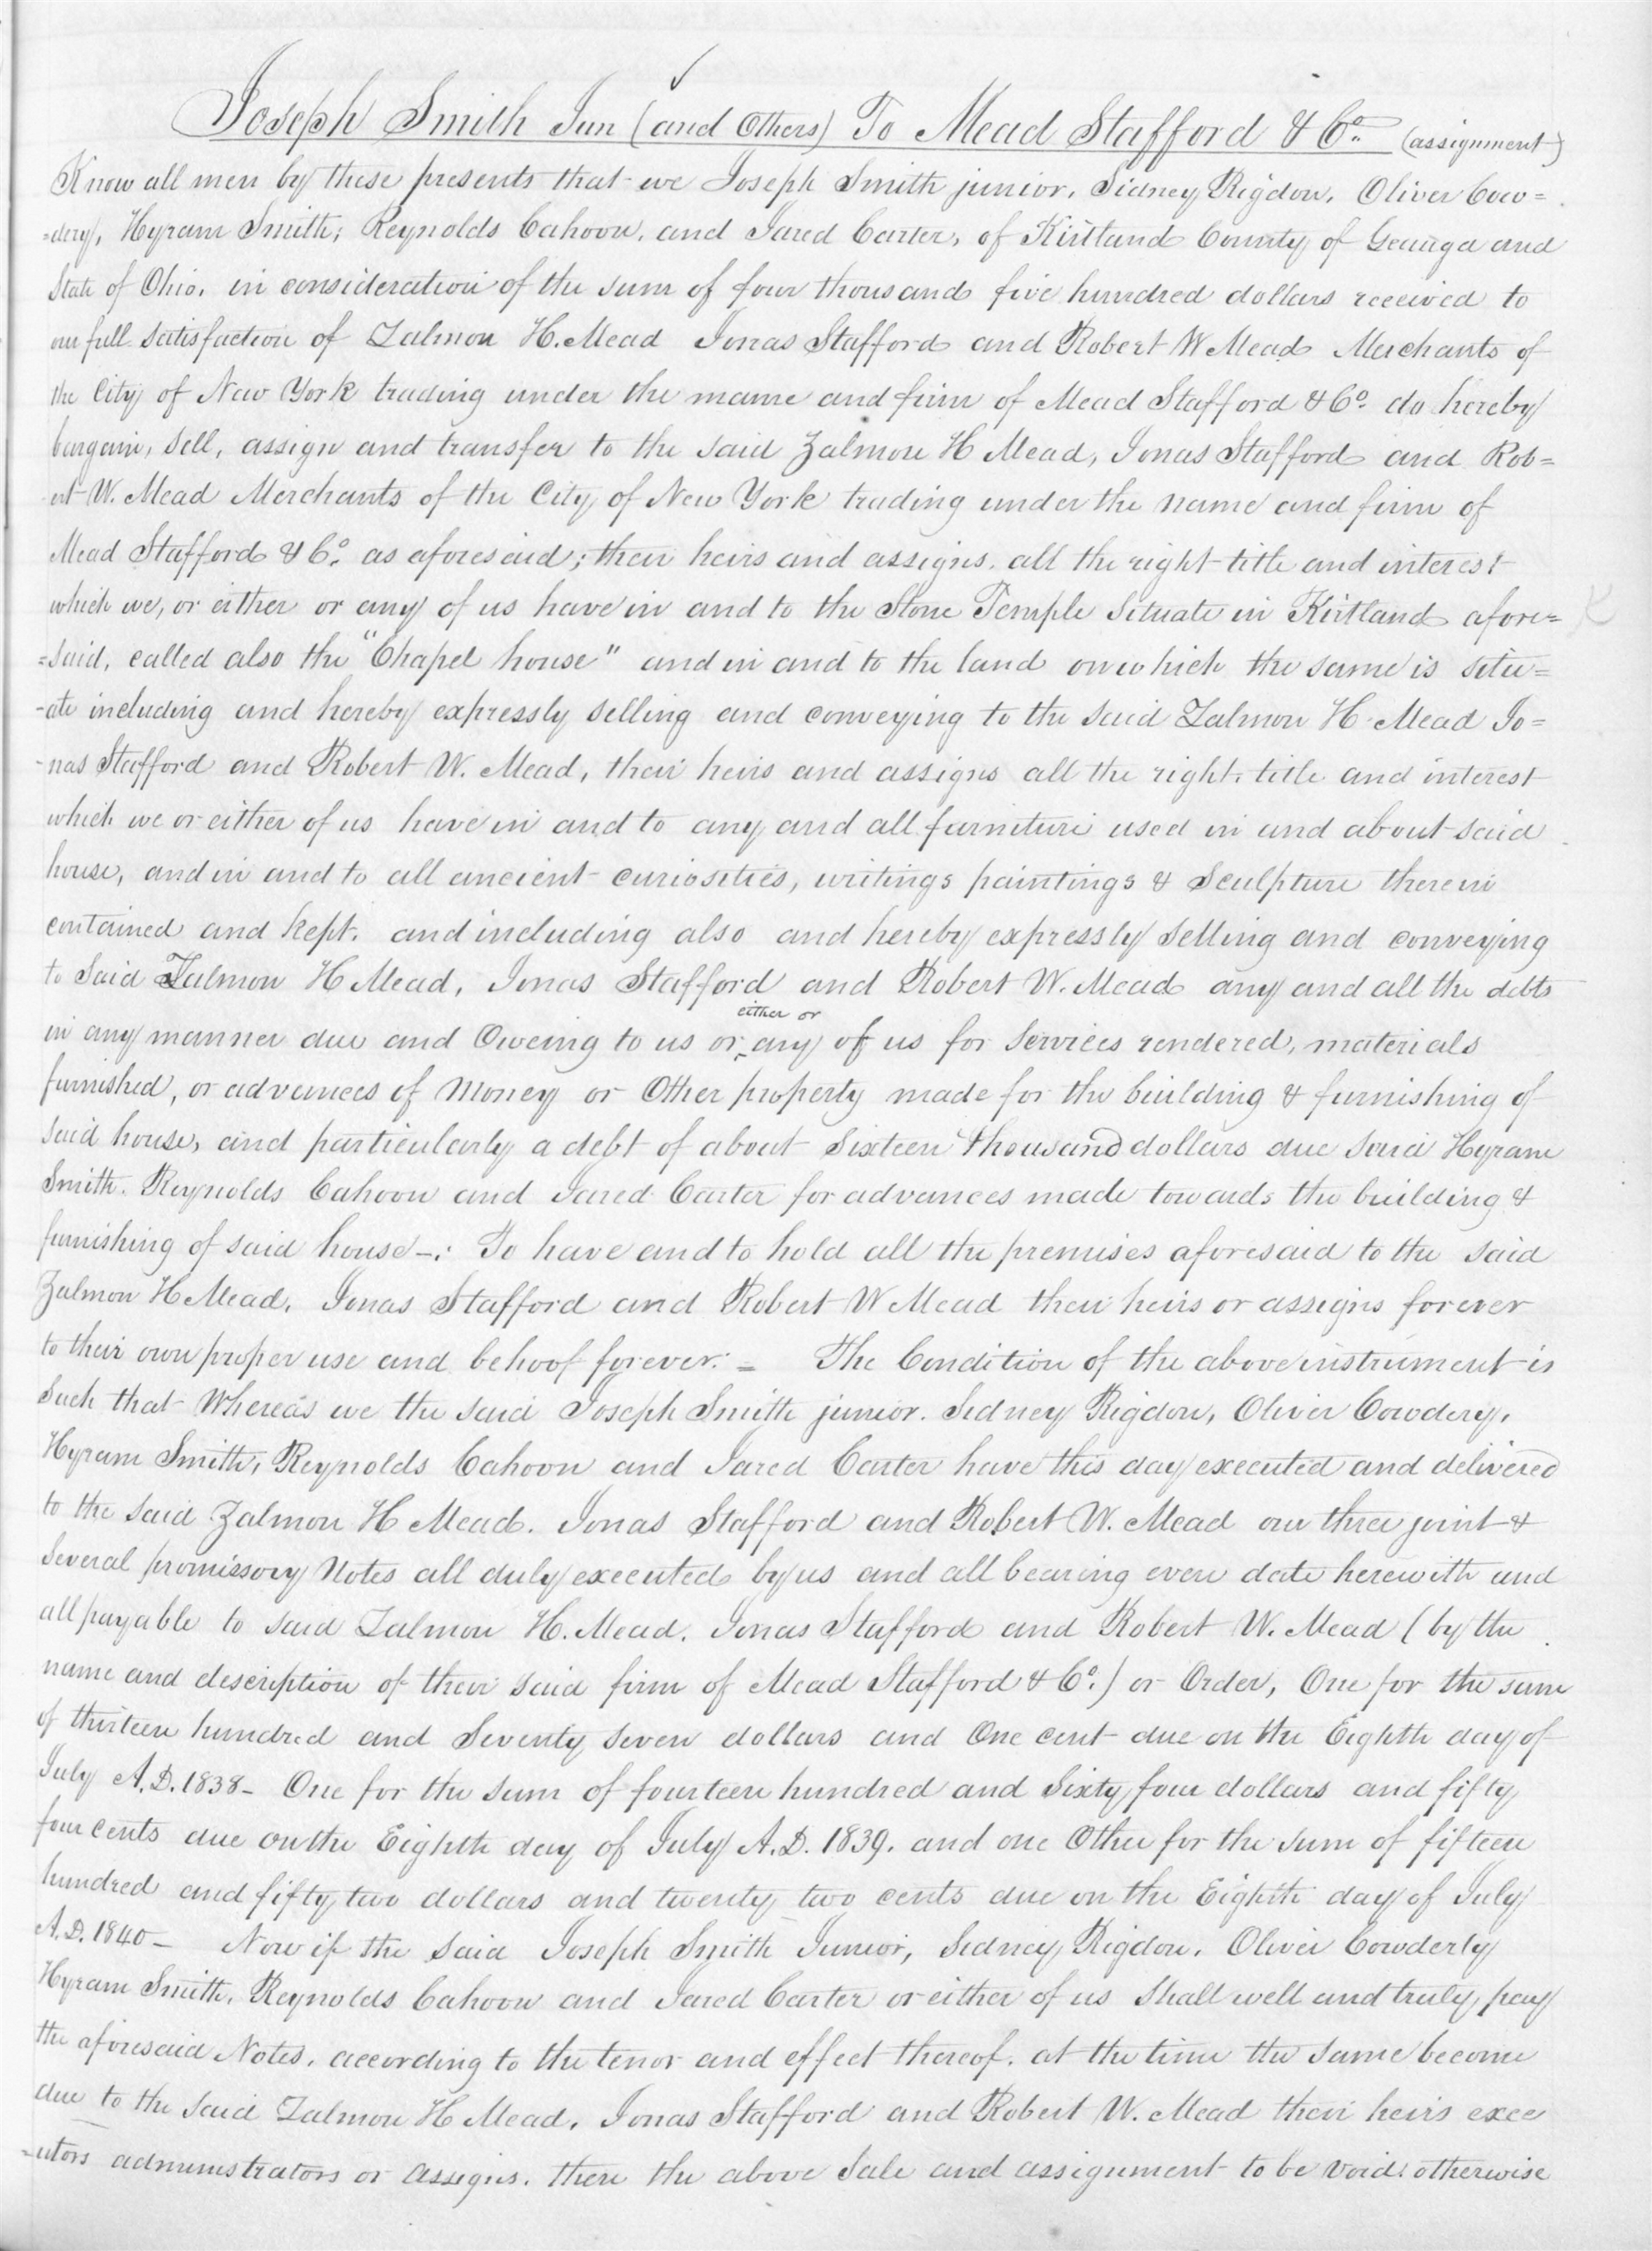 Joseph Smith Jun (and Others) To Mead Stafford & Co. (assignment)
Know all men by these presents that we Joseph Smith junior, Sidney Rigdon, Oliver Cow=
=dery, Hyram Smith; Reynolds Cahoon, and Jared Carter, of Kirtland County of Geauga and
State of Ohio, in consideration of the sum of four thousand five hundred dollars received to
our full satisfaction of Zalmon H. Mead Jonas Stafford and Robert W Mead Merchants of
the City of New York trading under the name and firm of Mead Stafford & Co. do hereby
bargain, sell, assign and transfer to the said Zalmon H Mead, Jonas Stafford and Rob=
ert W. Mead Merchants of the City of New York trading under the name and firm of
Mead Stafford & Co. as aforesaid; their heirs and assigns. all the right title and interest
which we, or either or any of us have in and to the Stone Temple situate in Kirtland afore=
=said, called also the "Chapel house" and in and to the land on which the same is situ=
-ate including and hereby expressly selling and conveying to the said Zalmon H. Mead Jo=
-nas Stafford and Robert W. Mead, their heirs and assigns all the right, title and interest
which we or either of us have in and to any and all furniture used in and about said
house, and in and to all ancient curiosities, writings paintings & Sculpture therein
contained and kept. and including also and hereby expressly selling and conveying
to said Zalmon H Mead, Jonas Stafford and Robert W. Mead any and all the debts
in any manner due and Oweing to us or either or any of us for services rendered, materials
furnished, or advances of Money or Other property made for the building & furnishing of
said house, and particularly a debt of about Sixteen thousand dollars due said Hyram
Smith. Reynolds Cahoon and Jared Carter for advances made towards the building &
furnishing of said house -: To have and to hold all the premises aforesaid to the said
Zalmon H Mead, Jonas Stafford and Robert W Mead their heirs or assigns forever
to their own proper use and behoof forever: = The Condition of the above instrument is
Such that Whereas we the said Joseph Smith junior. Sidney Rigdon, Oliver Cowdery,
Hyram Smith, Reynolds Cahoon and Jared Carter have this day executed and delivered
to the said Zalmon H Mead. Jonas Stafford and Robert W. Mead our three joint &
Several promissory Notes all duly executed by us and all bearing even date herewith and
all payable to said Zalmon H. Mead. Jonas Stafford and Robert W. Mead (by the
name and description of their said firm of Mead Stafford & Co.) or Order, One for the sum
of thirteen hundred and Seventy seven dollars and One cent due on the Eighth day of
July A.D. 1838- One for the sum of fourteen hundred and Sixty four dollars and fifty
four cents due on the Eighth day of July A.D. 1839. and one Other for the sum of fifteen
hundred and fifty two dollars and twenty two cents due on the Eighth day of July
A.D. 1840- Now if the said Joseph Smith Junior, Sidney Rigdon. Oliver Cowderly
Hyram Smith. Reynolds Cahoon and Jared Carter or either of us Shall well and truly pay
the aforesaid Notes, according to the tenor and effect thereof. at the time the same become
due to the said Zalmon H Mead, Jonas Stafford and Robert W. Mead their heirs exec
=utors administrators or assigns. then the above Sale and assignment to be void: otherwise